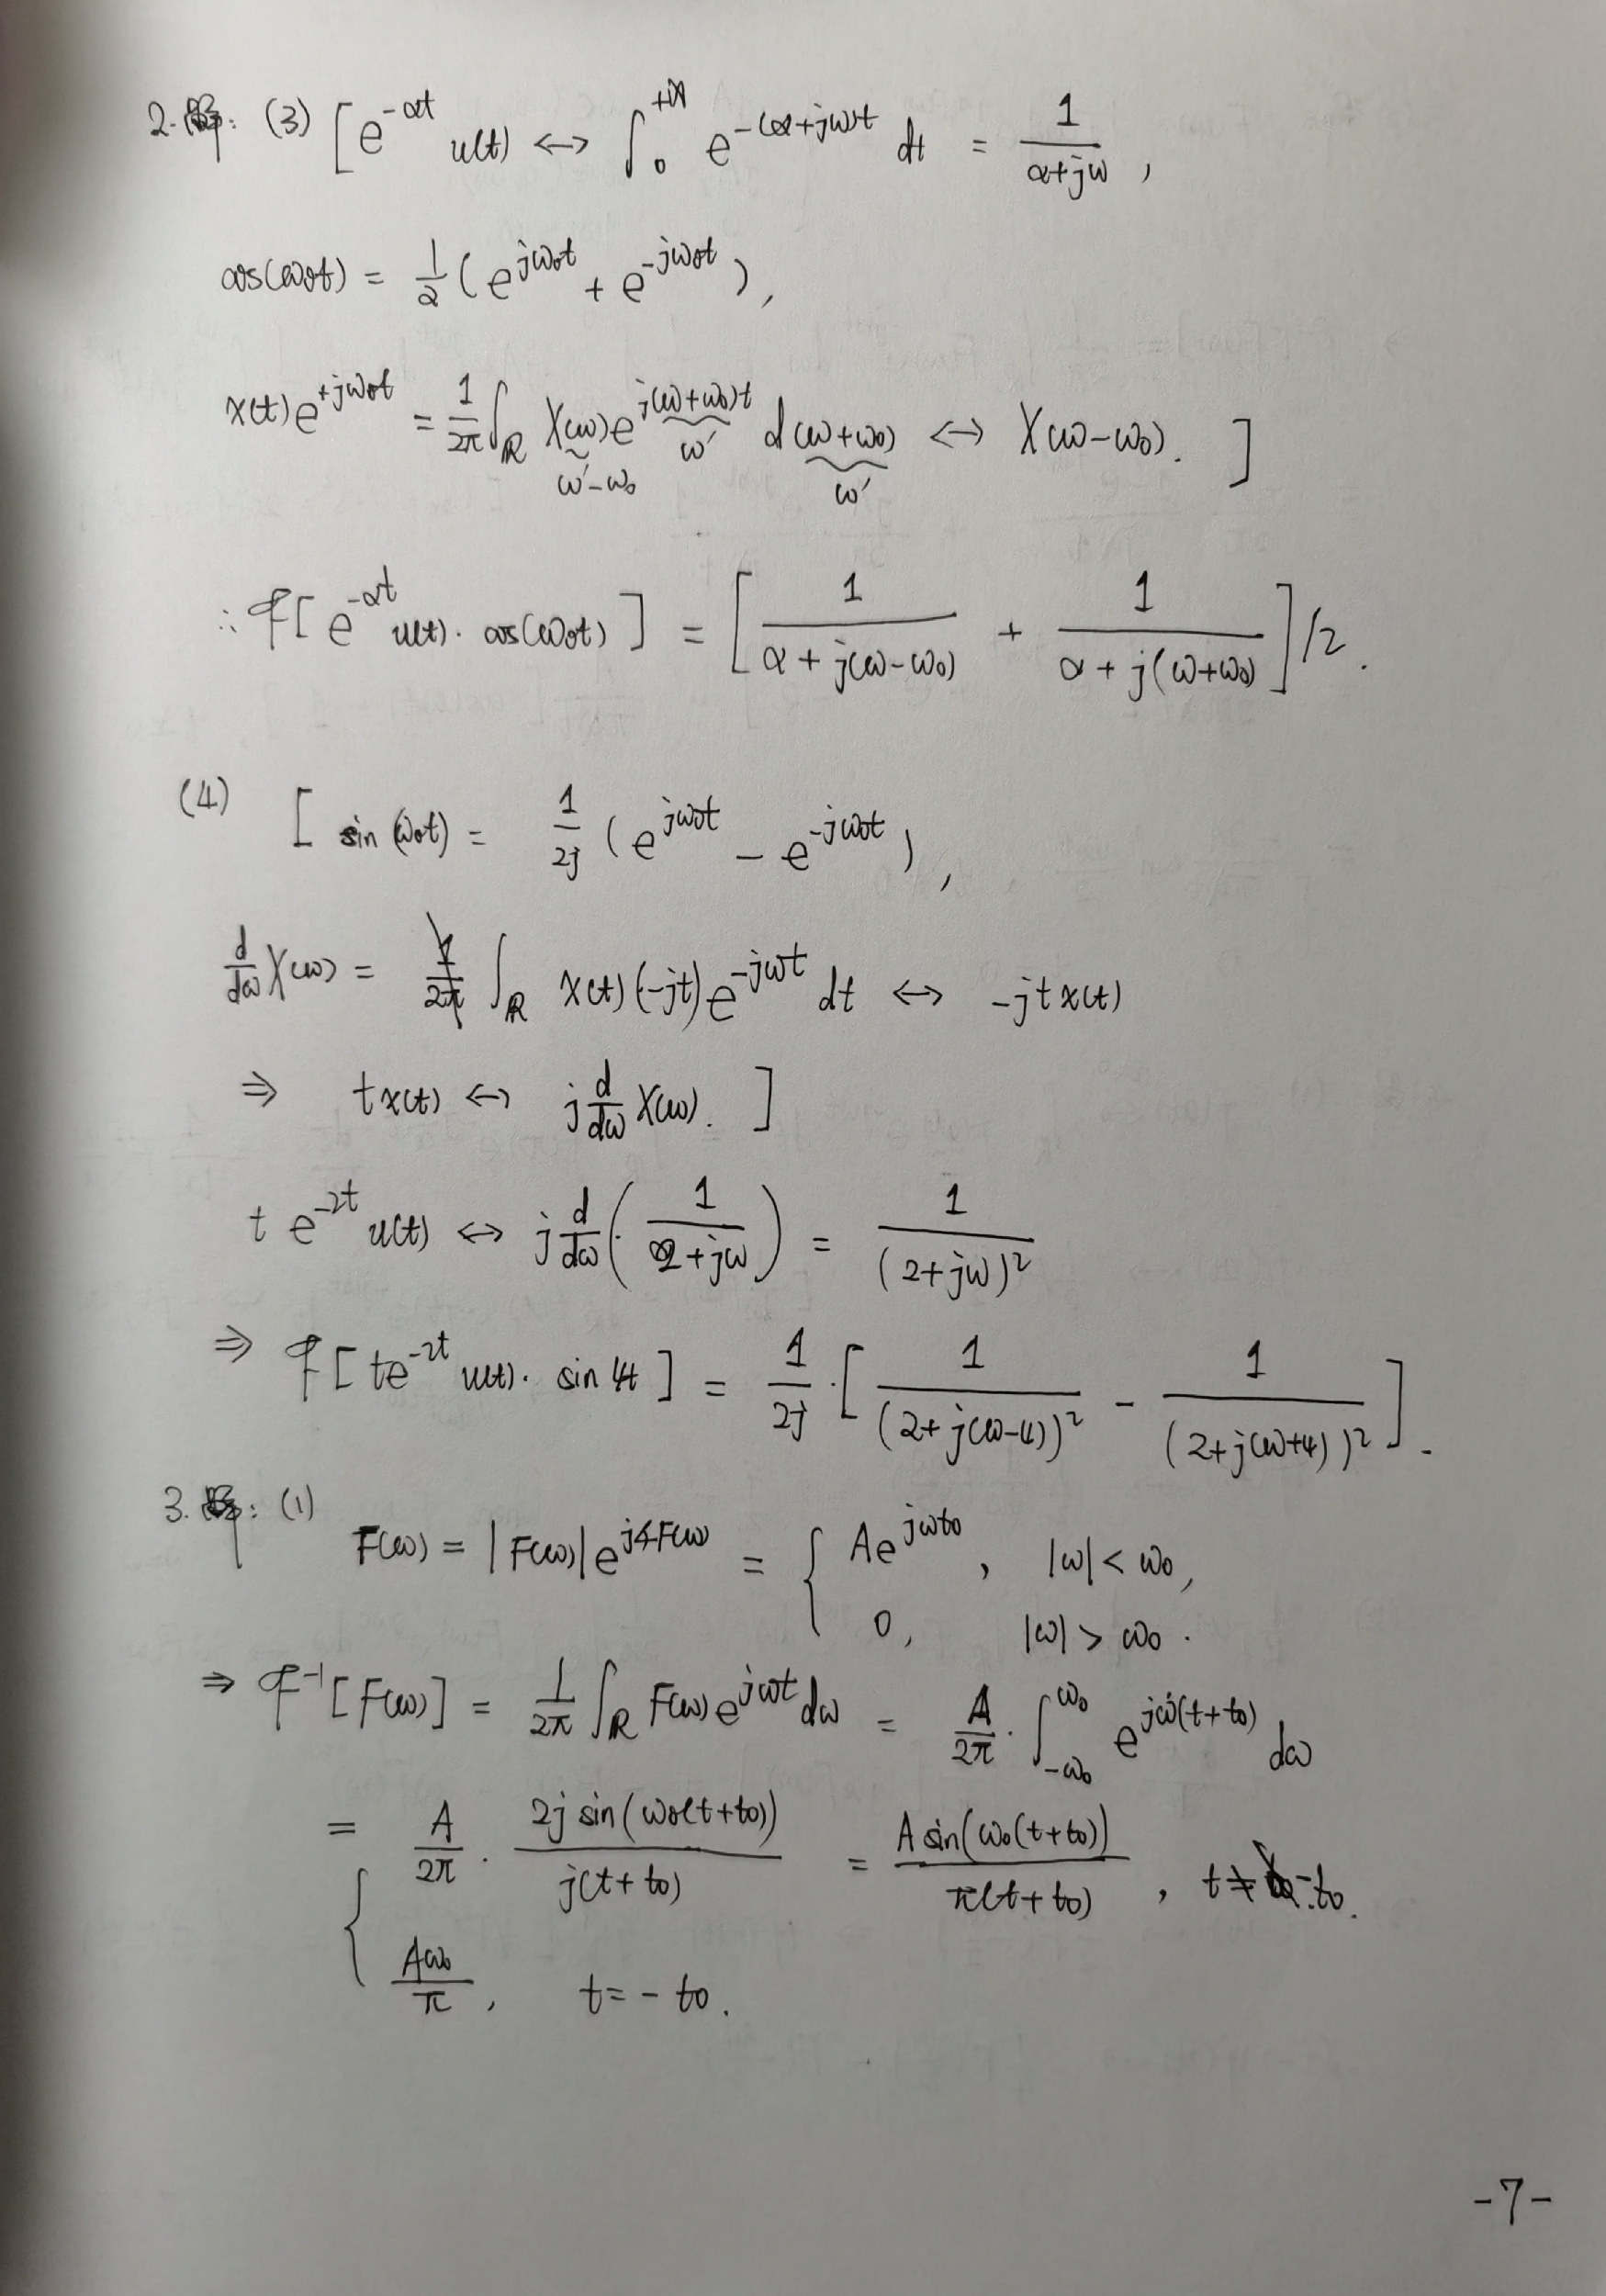 2.解: (3) [ e^{-αt} u(t) ↔ ∫_0^{+∞} e^{-(α+jω)t} dt = \frac{1}{α+jω} ,
cos(ω₀t) = \frac{1}{2} ( e^{jω₀t} + e^{-jω₀t} ) ,
x(t)e^{+jω₀t} = \frac{1}{2π} ∫_ℝ X(ω) e^{j(ω+ω₀)t} d(ω+ω₀) ↔ X(ω-ω₀). ]
ω'-ω₀ ω' ω'
∴ ℱ[ e^{-αt} u(t)· cos(ω₀t) ] = [ \frac{1}{α+j(ω-ω₀)} + \frac{1}{α+j(ω+ω₀)} ]/2 .
(4) [ sin(ω₀t) = \frac{1}{2j} ( e^{jω₀t} - e^{-jω₀t} ) ,
\frac{d}{dω} X(ω) = ∫_ℝ x(t)(-jt) e^{-jωt} dt ↔ -jtx(t)
⇒ tx(t) ↔ j\frac{d}{dω} X(ω). ]
t e^{-2t} u(t) ↔ j\frac{d}{dω} ( \frac{1}{2+jω} ) = \frac{1}{(2+jω)^2}
⇒ ℱ[ te^{-2t} u(t)· sin4t ] = \frac{1}{2j} · [ \frac{1}{(2+j(ω-4))^2} - \frac{1}{(2+j(ω+4))^2} ] .
3.解: (1) F(ω) = |F(ω)| e^{j∠F(ω)} = { Ae^{jωt₀} , |ω| < ω₀,
0, |ω| > ω₀ .
⇒ ℱ^{-1}[F(ω)] = \frac{1}{2π} ∫_ℝ F(ω) e^{jωt} dω = \frac{A}{2π} · ∫_{-ω₀}^{ω₀} e^{jω(t+t₀)} dω
= { \frac{A}{2π} · \frac{2j sin(ω₀(t+t₀))}{j(t+t₀)} = \frac{A sin(ω₀(t+t₀))}{π(t+t₀)} , t≠-t₀.
\frac{Aω₀}{π} , t=-t₀.
-7-